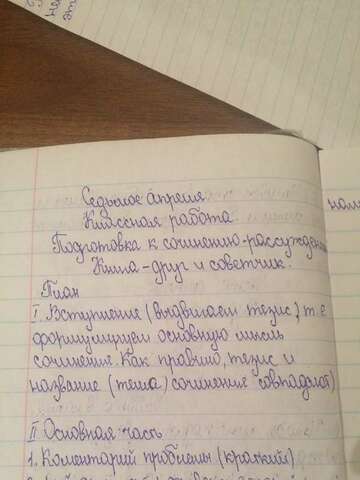 Седьмое апреля.
Классная работа.
Подготовка к сочинению-рассужден
Книга - друг и советчик.
План
I. Вступление (выдвигаем тезис), т.е
формулируем основную мысль
сочинение. Как правило, тезис и
название (тема) сочинение совпадают)
II Основная часть
1. Коментарий проблемы (краткий)